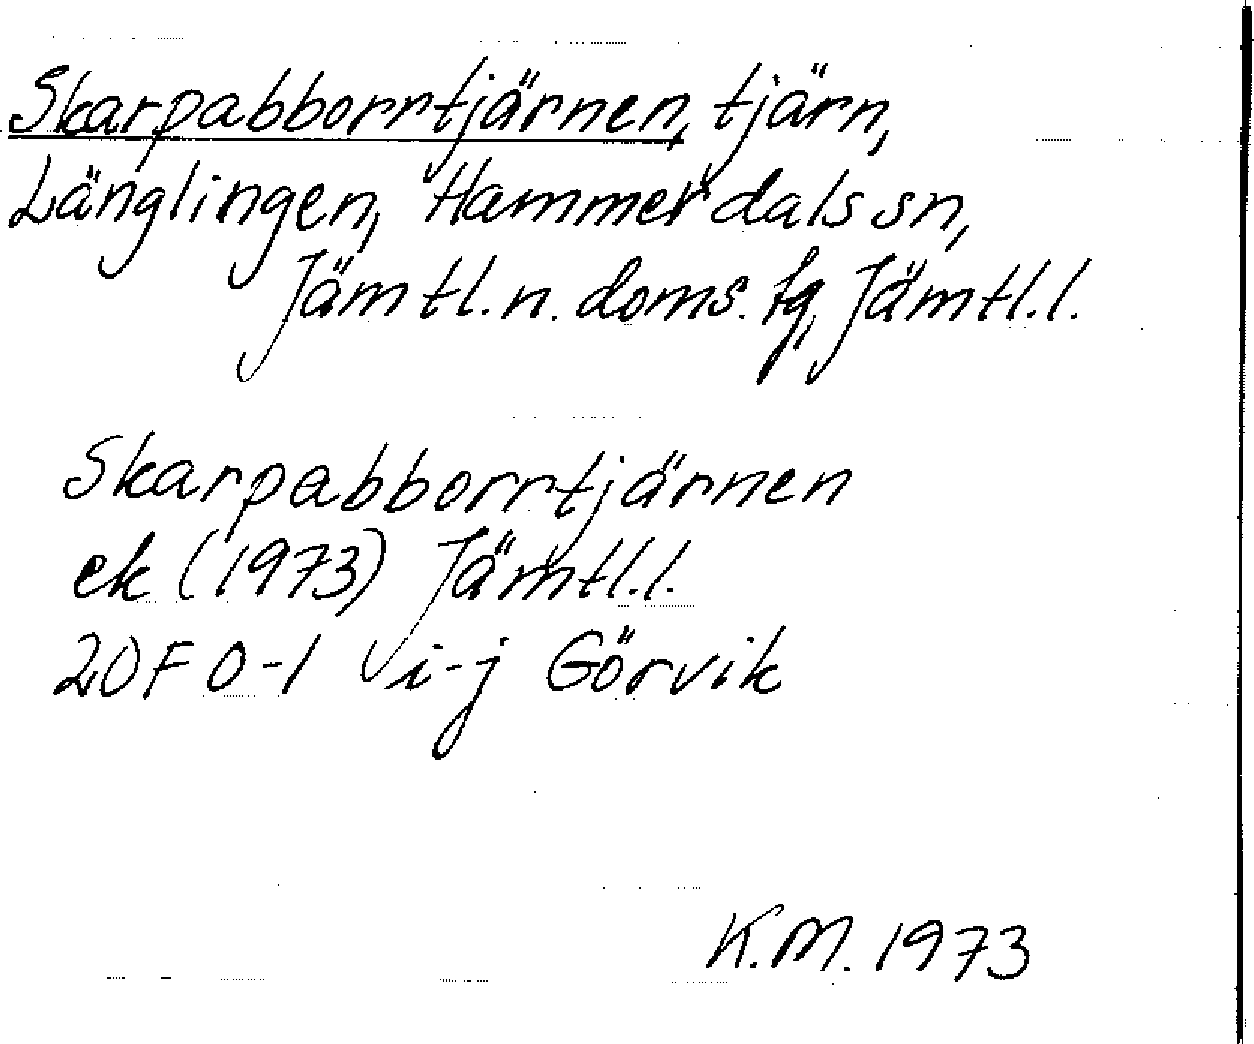 Skarpabborrtjärnen, tjärn,
Länglingen, Hammerdals sn,
Jämtl. n. doms. fq, Jämtl. l.
Skarpabborrtjärnen
ek (1973) Jämtl. l.
20F 0-1 i-j Görvik
K.M. 1973